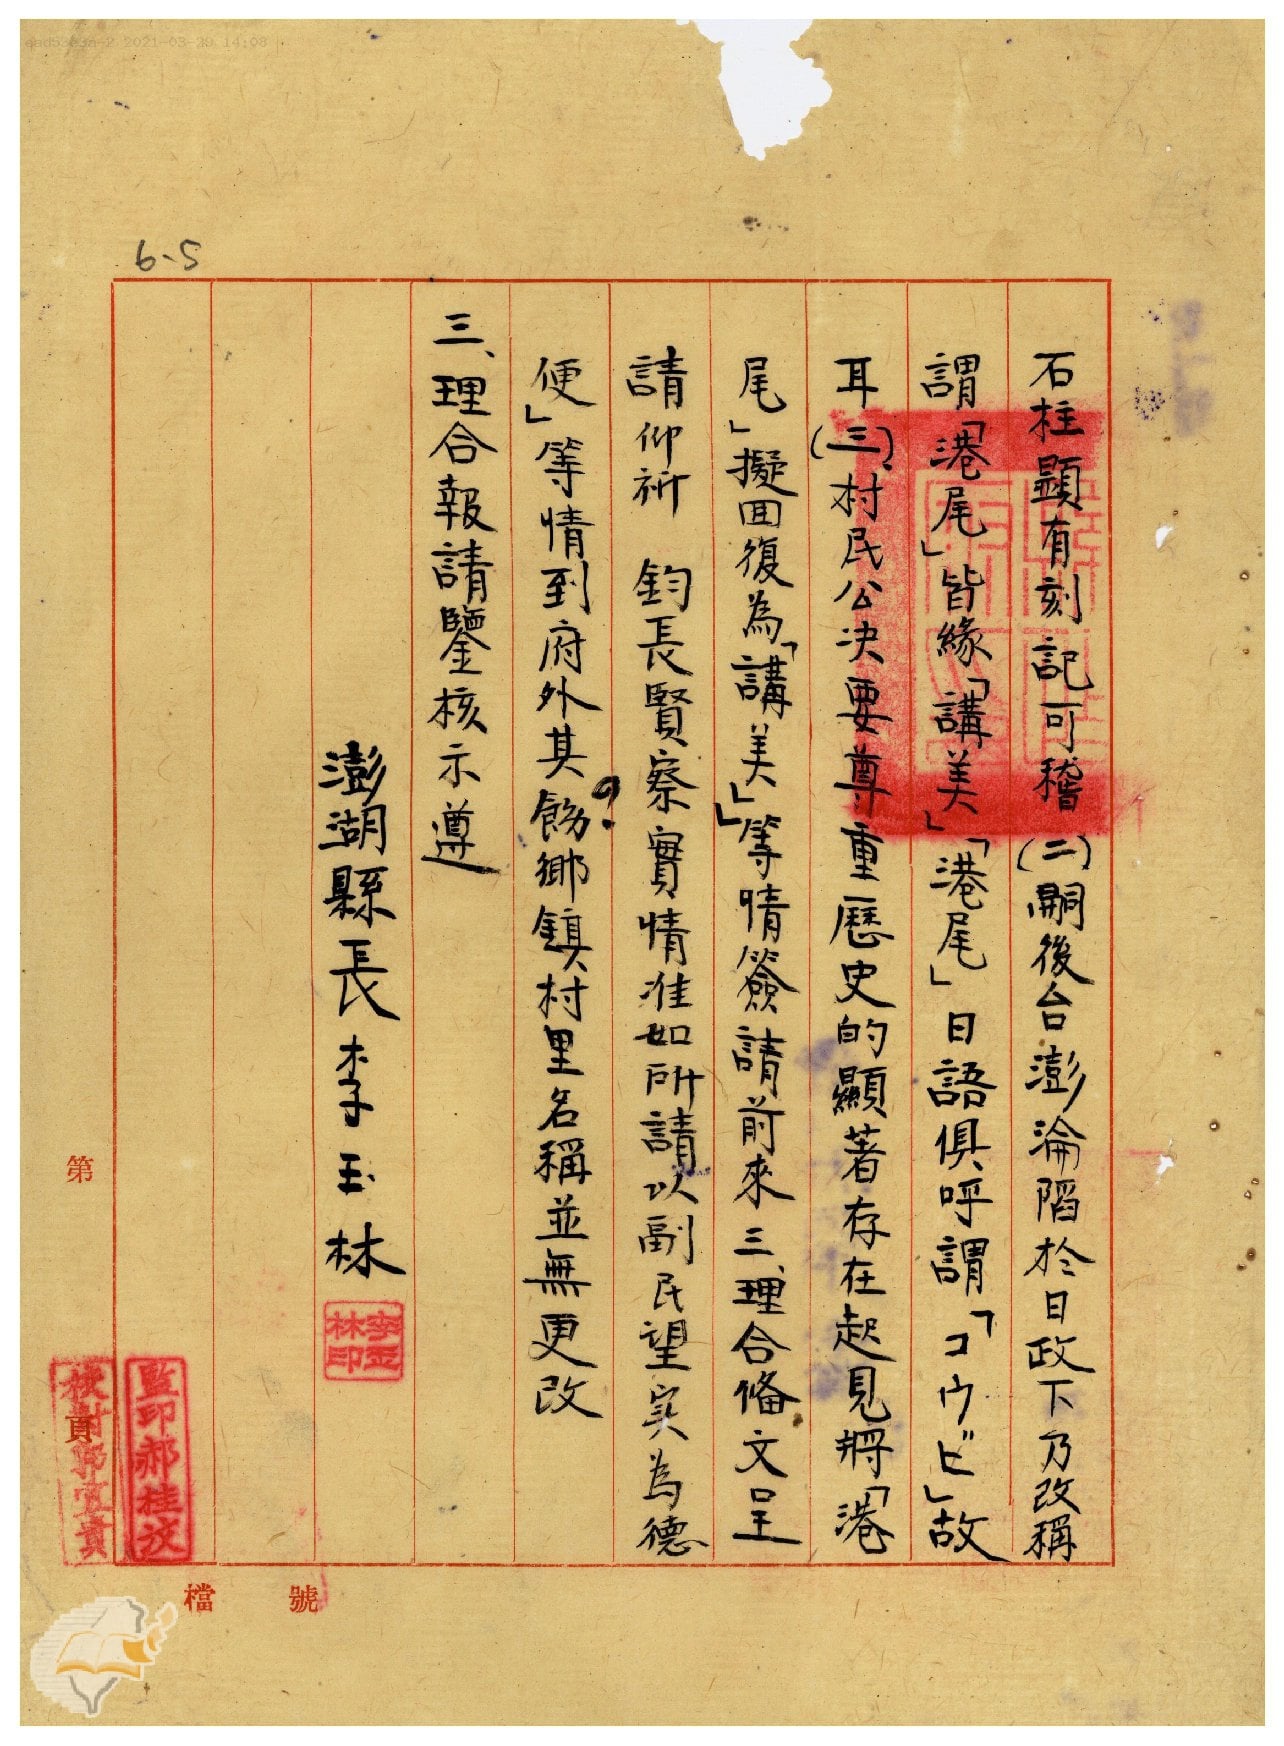 ead5363a-2 2021-03-29 14:08
6-5
石柱顯有刻記可稽(二)嗣後台澎淪陷於日政下乃改稱
謂「港尾」皆緣「講美」「港尾」日語俱呼謂「コウビ」故
耳(三)村民公决要尊重歷史的顯著存在起見將「港
尾」擬回復為「講美」」等情簽請前來三、理合俻文呈
請仰祈 鈞長賢察實情准如所請以副民望实為德
便」等情到府外其餘鄉鎮村里名稱並無更改
三、理合報請鑒核示遵
澎湖縣長李玉林
李玉林印
監印郝桂
校對郭宜貴
第
頁
檔 號